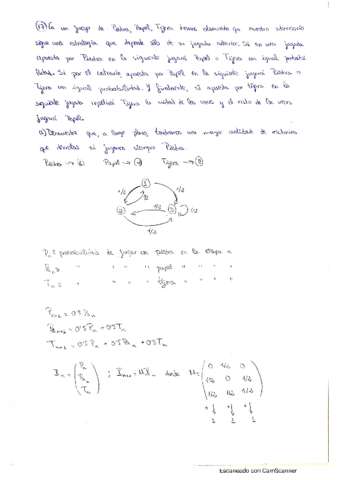 (17) En un juego de Piedra, Papel, Tijera hemos observado que nuestro adversario
sigue una estrategia que depende solo de su jugada anterior. Si en una jugada
apuesta por Piedra en la siguiente jugará Papel o Tijera con igual probabi
lidad. Si por el contrario apuesta por Papel en la siguiente jugará Piedra o
Tijera con igual probabilidad. Y finalmente, si apuesta por tijera en la
siguiente jugada repetirá Tijera la mitad de las veces y el resto de las veces
jugará Papel.
a) Demuestra que, a largo plazo, tendremos una mayor cantidad de victorias
que derrotas si jugamos siempre Piedra.
Piedra → ① Papel → ② Tijera → ③
1
1/2
1/2
1/2
2
1/2
3
1/2
1/2
Pn = probabilidad de jugar con piedra en la etapa n
Pan = " " " " papel " " " "
Tn = " " " " tijera " " " "
Pn+1 = 0'5 Pan
Pan+1 = 0'5 Pn + 0'5 Tn
Tn+1 = 0'5 Pn + 0'5 Pan + 0'5 Tn
Xn = (Pn Pan Tn) ; Xn+1 = M Xn donde M = (0 1/2 0
1/2 0 1/2
1/2 1/2 1/2)
+↓ +↓ +↓
1 1 1
Escaneado con CamScanner